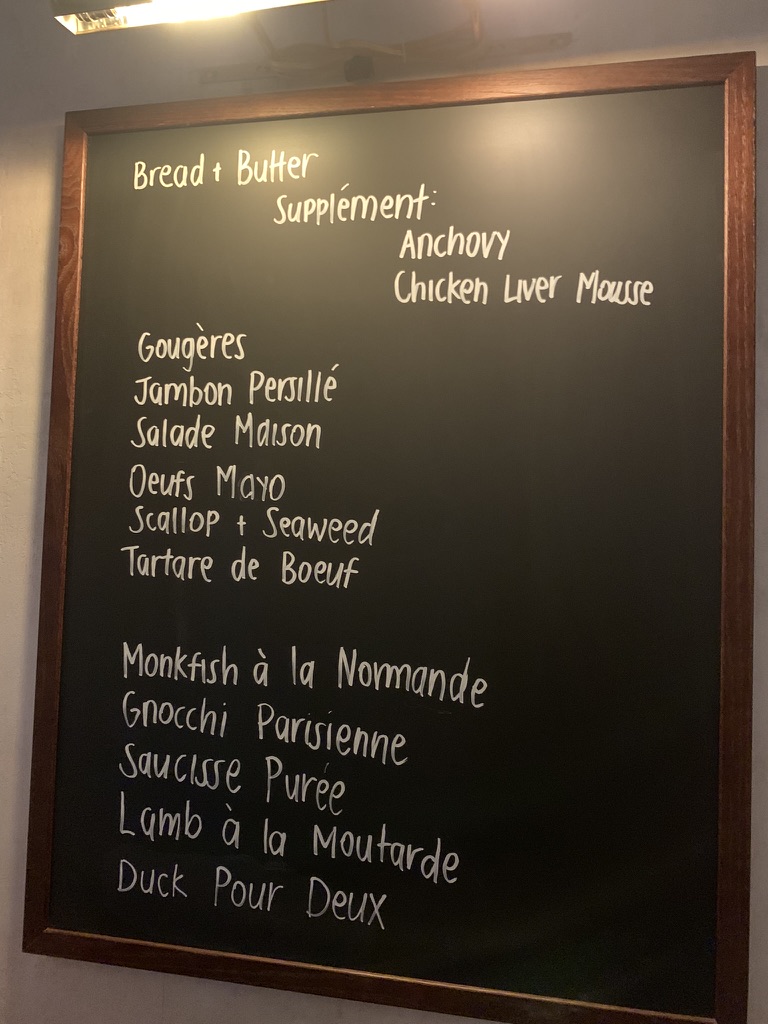 Bread + Butter
Supplément:
Anchovy
Chicken Liver Mousse
Gougères
Jambon Persillé
Salade Maison
Oeufs Mayo
Scallop + Seaweed
Tartare de Boeuf
Monkfish à la Normande
Gnocchi Parisienne
Saucisse Purée
Lamb à la Moutarde
Duck Pour Deux